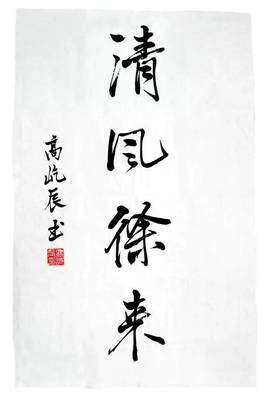 清风徐来
高屹辰书